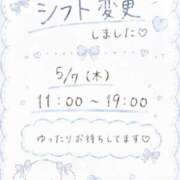 シフト変更
しました♡
5/7(木)
11:00~19:00
ゆったりお待ちしてます♡